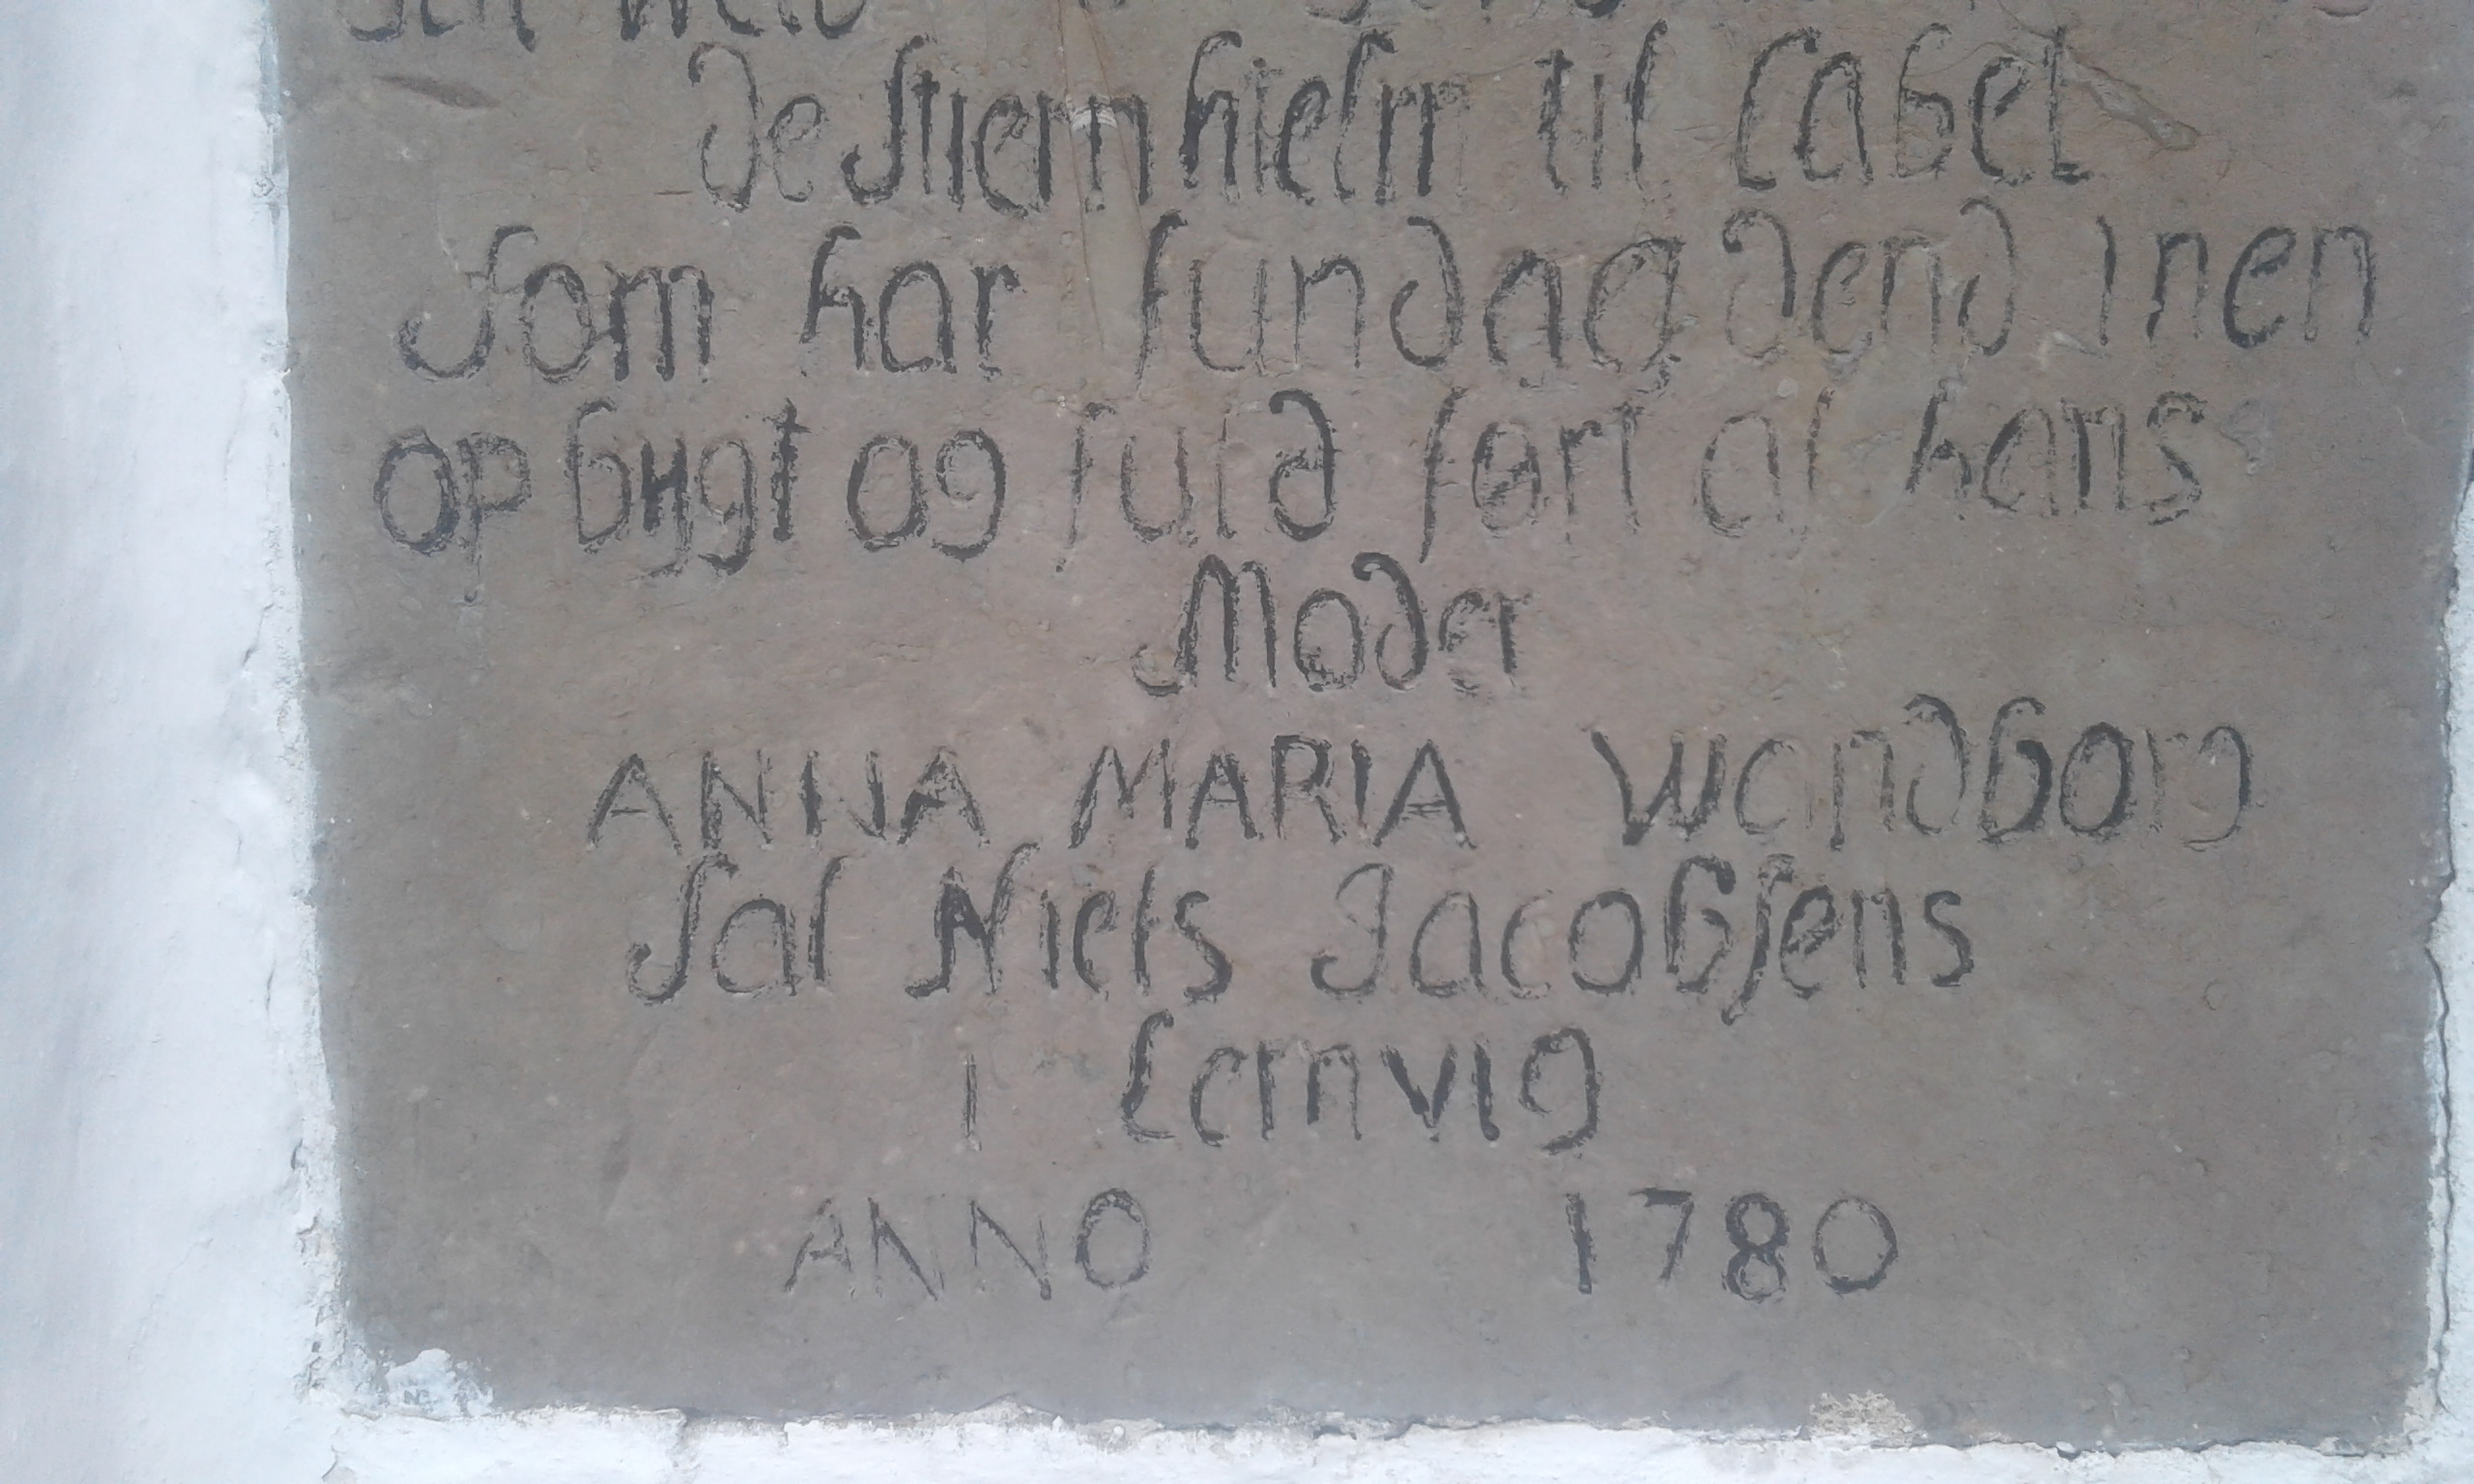 de Stiernhielm til Cabel
Som har fundag dend inen
op bÿgt og fuld ført af hans
Moder
ANNA MARIA Wandborg
Sal Niels Jacobsens
i Lemvig
ANNO 1780